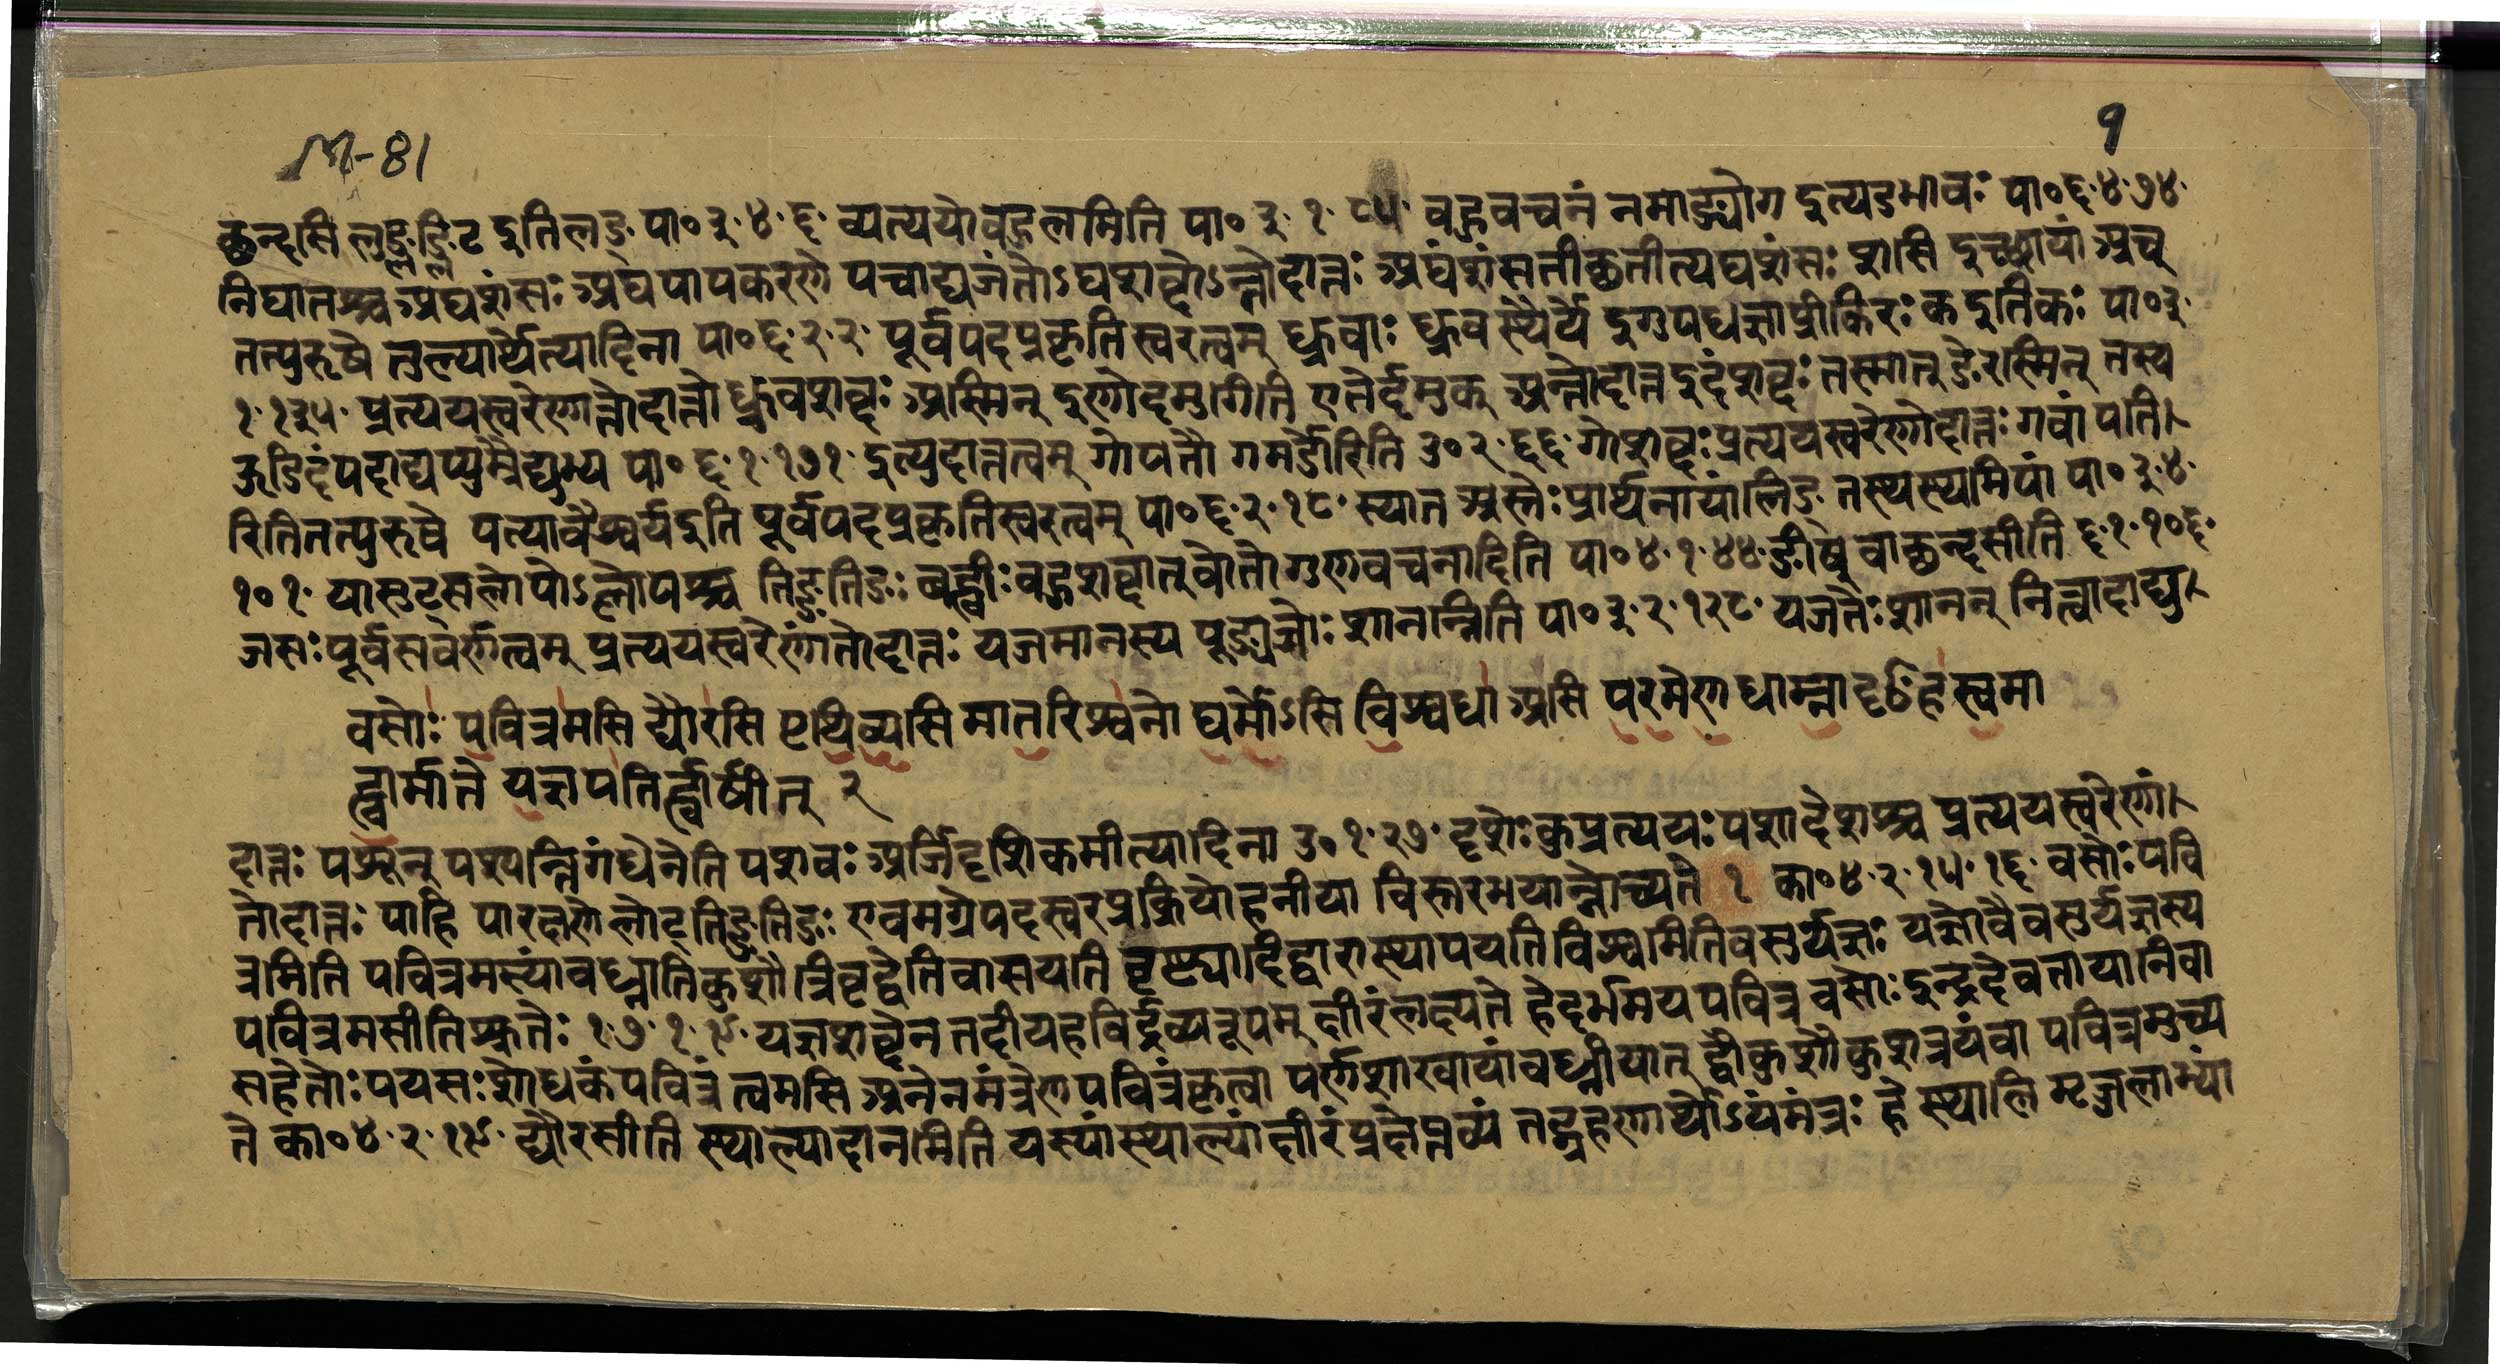 M-81
१
छन्दसि लुङ्लङ्लिट इति लङ् पा॰ ३·४·६· व्यत्ययो बहुलमिति पा॰ ३·१·८५· बहुवचनं नमाङ्योग इत्यडभावः पा॰ ६·४·७४·
निघातश्च अघशंसः अघ पापकरणे पचाद्यजंतोऽघशब्दोऽन्तोदात्तः अघंशंसतीछतीत्यघशंसः शसि इच्छायां अच्
तत्पुरुषे तुल्यार्थेत्यादिना पा॰ ६·२·२· पूर्वपदप्रकृतिस्वरत्वम् ध्रुवाः ध्रुवस्थैर्ये इगुपधज्ञाप्रीकिरः क इतिकः पा॰ ३·
१·१३५· प्रत्ययस्वरेणान्तोदात्तो ध्रुवशब्दः अस्मिन् इणोदमुगिति एतेर्दमुक् अन्तोदात्त इदंशब्दः तस्मात् ङेरास्मिन् तस्य
ऊडिदंपदाद्यप्पुम्रैद्युभ्य पा॰ ६·१·१७१· इत्युदात्तत्वम् गोपतौ गमर्डोरिति उ॰ २·६६· गोशब्दः प्रत्ययस्वरेणोदात्तः गवां पति।
रिति तत्पुरुषे पत्यावैश्वर्यइति पूर्वपदप्रकृतिस्वरत्वम् पा॰ ६·२·१८· स्यात अस्तेः प्रार्थनायांलिङ् तस्थस्थमिपां पा॰ ३·४·
१०१· यासुट्सलोपोऽल्लोपश्च तिङ्ङतिङः बह्वीः बहुशब्दात् वोतो गुणवचनादिति पा॰ ४·१·४४· ङीष् वाछन्दसीति ६·१·१०६·
जसः पूर्वसवर्णत्वम् प्रत्ययस्वरेणांतोदात्तः यजमानस्य पूङ्यजोः शानन्निति पा॰ ३·२·१२८· यजतेः शानन् नित्त्वादाद्यु।
वसोः पवित्रमसि द्यौरसि पृथिव्यसि मातरिश्वनो घर्मोऽसि विश्वधा असि परमेण धाम्ना दृꣳहस्व मा
ह्वार्मा ते यज्ञपतिर्ह्वार्षीत् २
दात्तः पशून् पश्यन्तिगंधेनेति पशवः अर्जिदृशिकमीत्यादिना उ॰ १·२७· दृशेः कुप्रत्ययः पशादेशश्च प्रत्ययस्वरेणां।
तोदात्तः पाहि पारक्षणेलोट् तिङ्ङतिङः एवमग्रेपदस्वरप्रक्रियोहनीया विस्तरभयान्नोच्यते १ का॰ ४·२·१५·१६· वसोः पवि
त्रमिति पवित्रमस्यांबध्नातिकुशौ त्रिवृद्वेति वासयति वृष्ट्यादिद्वारास्थापयति विश्वमितिवसुर्यज्ञः यज्ञोवैवसुर्यज्ञस्य
पवित्रमसीतिश्रुतेः १·७·१·९· यज्ञशब्देन तदीयहविर्द्रव्यरूपम् क्षीरंलक्ष्यते हेदर्भमयपवित्र वसोः इन्द्रदेवतायानिवा
सहेतोः पयसः शोधकंपवित्रं त्वमसि अनेनमंत्रेणपवित्रंकृत्वा पर्णशाखायांबध्नीयात् द्वौकुशौकुशत्रयंवा पवित्रमुच्य
ते का॰ ४·२·१९· द्यौरसीति स्थाल्यादानमिति यस्यांस्थाल्यांक्षीरंप्रक्षेप्तव्यं तद्ग्रहणार्थोऽयंमंत्रः हे स्थालि मृज्जलाभ्यां